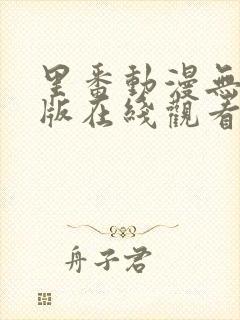 里番動漫無
版在綫觀看
舟子君